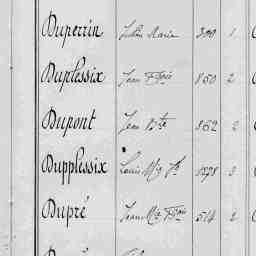 Duperrin Julien Marie 300 1
Duplessix Jean Fçois 850 2
Dupont Jean Bte 862 2
Dupplessix Louis Mie Jh 1278 3
Dupré Jean Mie Fçois 514 2